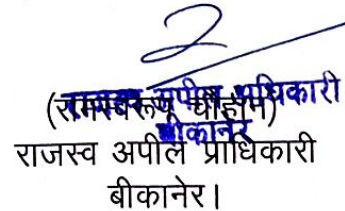 राजस्व अपील अधिकारी
(रामस्वरूप चौहान)
बीकानेर
राजस्व अपील प्राधिकारी
बीकानेर।